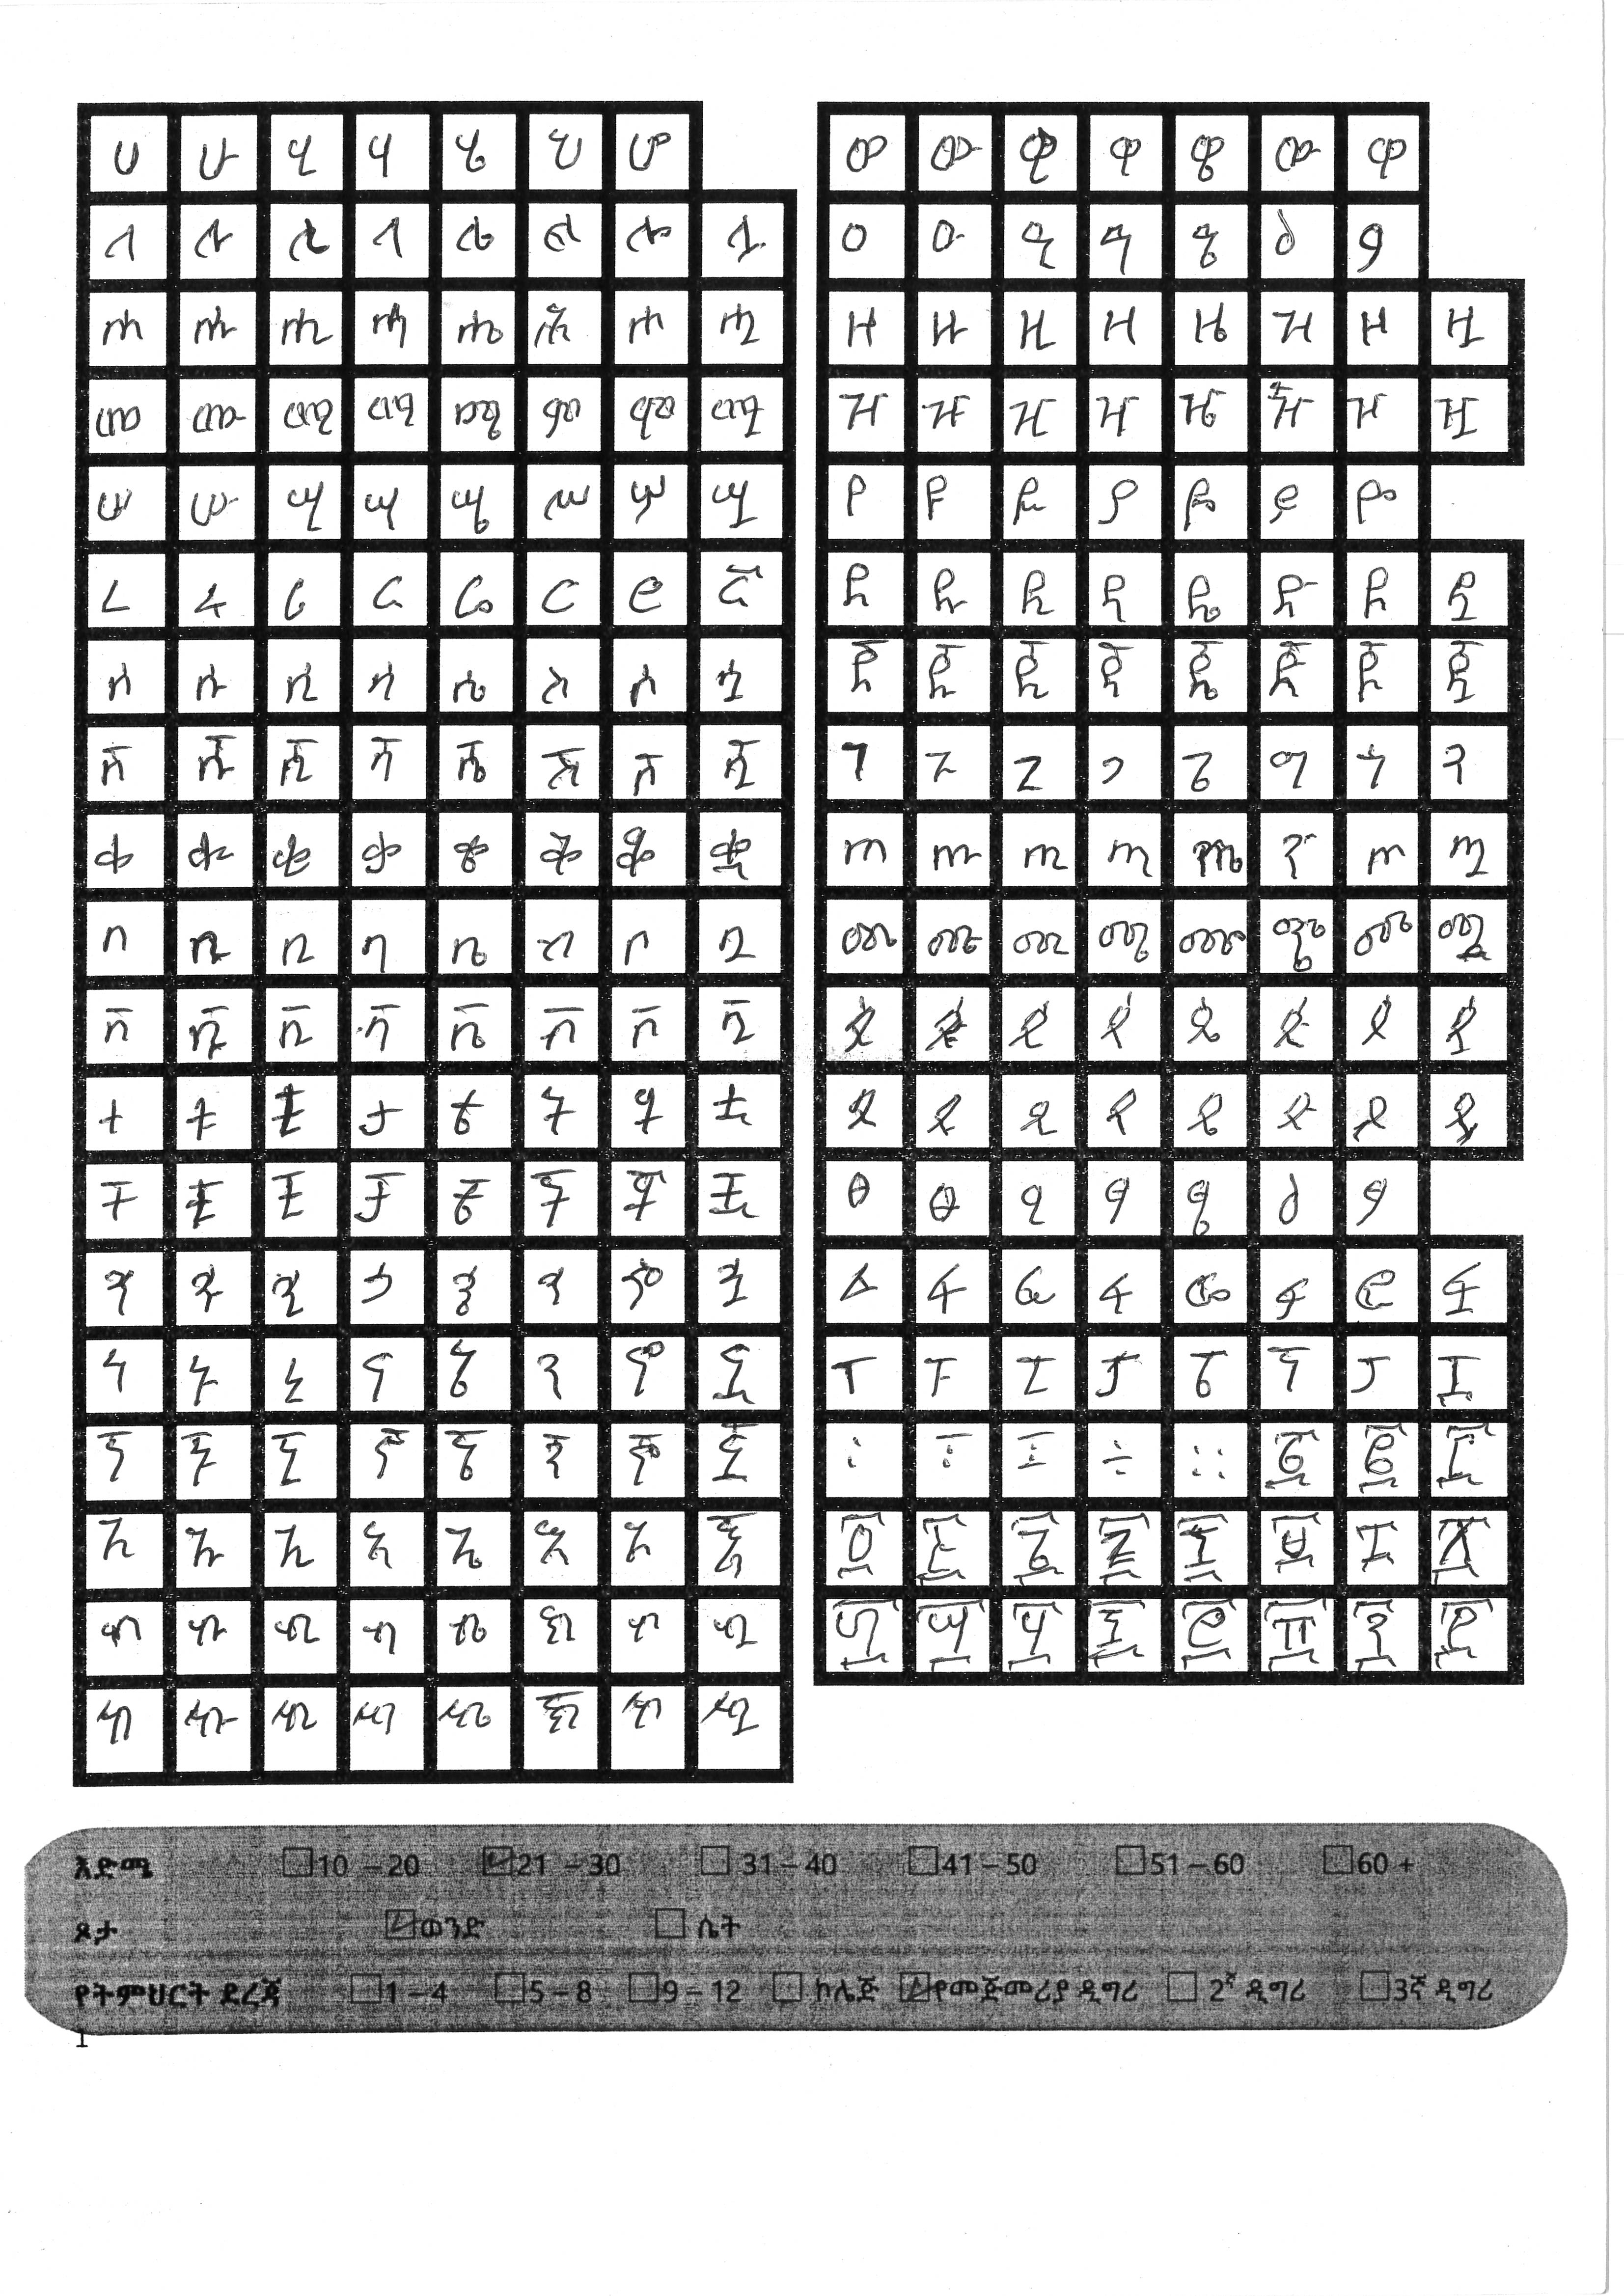 ሀ ሁ ሂ ሃ ሄ ህ ሆ
ለ ሉ ሊ ላ ሌ ል ሎ ሏ
ሐ ሑ ሒ ሓ ሔ ሕ ሖ ሗ
መ ሙ ሚ ማ ሜ ም ሞ ሟ
ሠ ሡ ሢ ሣ ሤ ሥ ሦ ሧ
ረ ሩ ሪ ራ ሬ ር ሮ ሯ
ሰ ሱ ሲ ሳ ሴ ስ ሶ ሷ
ሸ ሹ ሺ ሻ ሼ ሽ ሾ ሿ
ቀ ቁ ቂ ቃ ቄ ቅ ቆ ቋ
በ ቡ ቢ ባ ቤ ብ ቦ ቧ
ቨ ቩ ቪ ቫ ቬ ቭ ቮ ቯ
ተ ቱ ቲ ታ ቴ ት ቶ ቷ
ቸ ቹ ቺ ቻ ቼ ች ቾ ቿ
ኀ ኁ ኂ ኃ ኄ ኅ ኆ ኋ
ነ ኑ ኒ ና ኔ ን ኖ ኗ
ኘ ኙ ኚ ኛ ኜ ኝ ኞ ኟ
አ ኡ ኢ ኣ ኤ እ ኦ ኧ
ከ ኩ ኪ ካ ኬ ክ ኮ ኳ
ኸ ኹ ኺ ኻ ኼ ኽ ኾ ዃ
ወ ዉ ዊ ዋ ዌ ው ዎ
ዐ ዑ ዒ ዓ ዔ ዕ ዖ
ዘ ዙ ዚ ዛ ዜ ዝ ዞ ዟ
ዠ ዡ ዢ ዣ ዤ ዥ ዦ ዧ
የ ዩ ዪ ያ ዬ ይ ዮ
ደ ዱ ዲ ዳ ዴ ድ ዶ ዷ
ጀ ጁ ጂ ጃ ጄ ጅ ጆ ጇ
ገ ጉ ጊ ጋ ጌ ግ ጎ ጓ
ጠ ጡ ጢ ጣ ጤ ጥ ጦ ጧ
ጨ ጩ ጪ ጫ ጬ ጭ ጮ ጯ
ጰ ጱ ጲ ጳ ጴ ጵ ጶ ጷ
ጸ ጹ ጺ ጻ ጼ ጽ ጾ ጿ
ፀ ፁ ፂ ፃ ፄ ፅ ፆ
ፈ ፉ ፊ ፋ ፌ ፍ ፎ ፏ
ፐ ፑ ፒ ፓ ፔ ፕ ፖ ፗ
፡ ፣ ፤ ÷ ።  ፩ ፪ ፫
፬ ፭ ፮ ፯ ፰ ፱ ፲ ፳
፴ ፵ ፶ ፷ ፸ ፹ ፺ ፻
እድሜ 10 – 20 21 – 30 31 – 40 41 – 50 51 – 60 60 +
ጾታ ወንድ ሴት
የትምህርት ደረጃ 1 – 4 5 – 8 9 – 12 ኮሌጅ የመጀመሪያ ዲግሪ 2ኛ ዲግሪ 3ኛ ዲግሪ
1